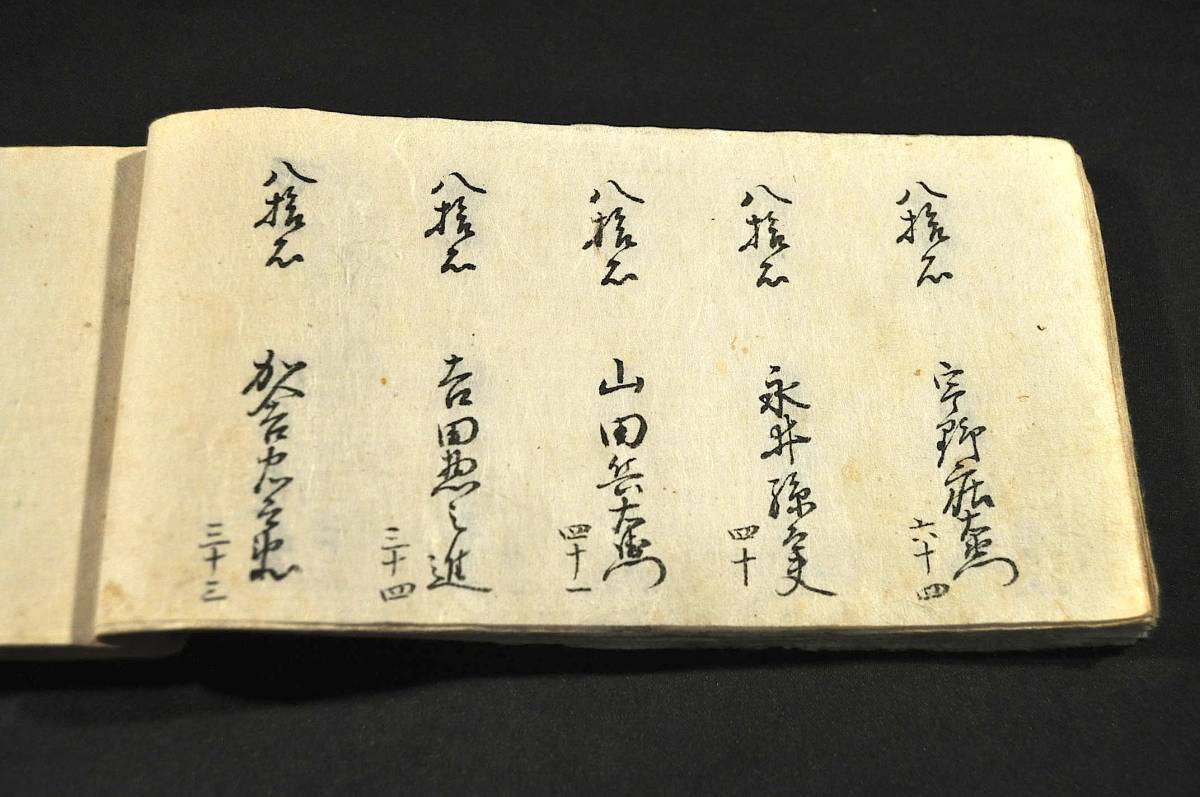 八拾石
宇野庄左衛門
六十四
八拾石
永井孫太夫
四十
八拾石
山田兵右衛門
四十一
八拾石
吉田惣之進
三十四
八拾石
三十三